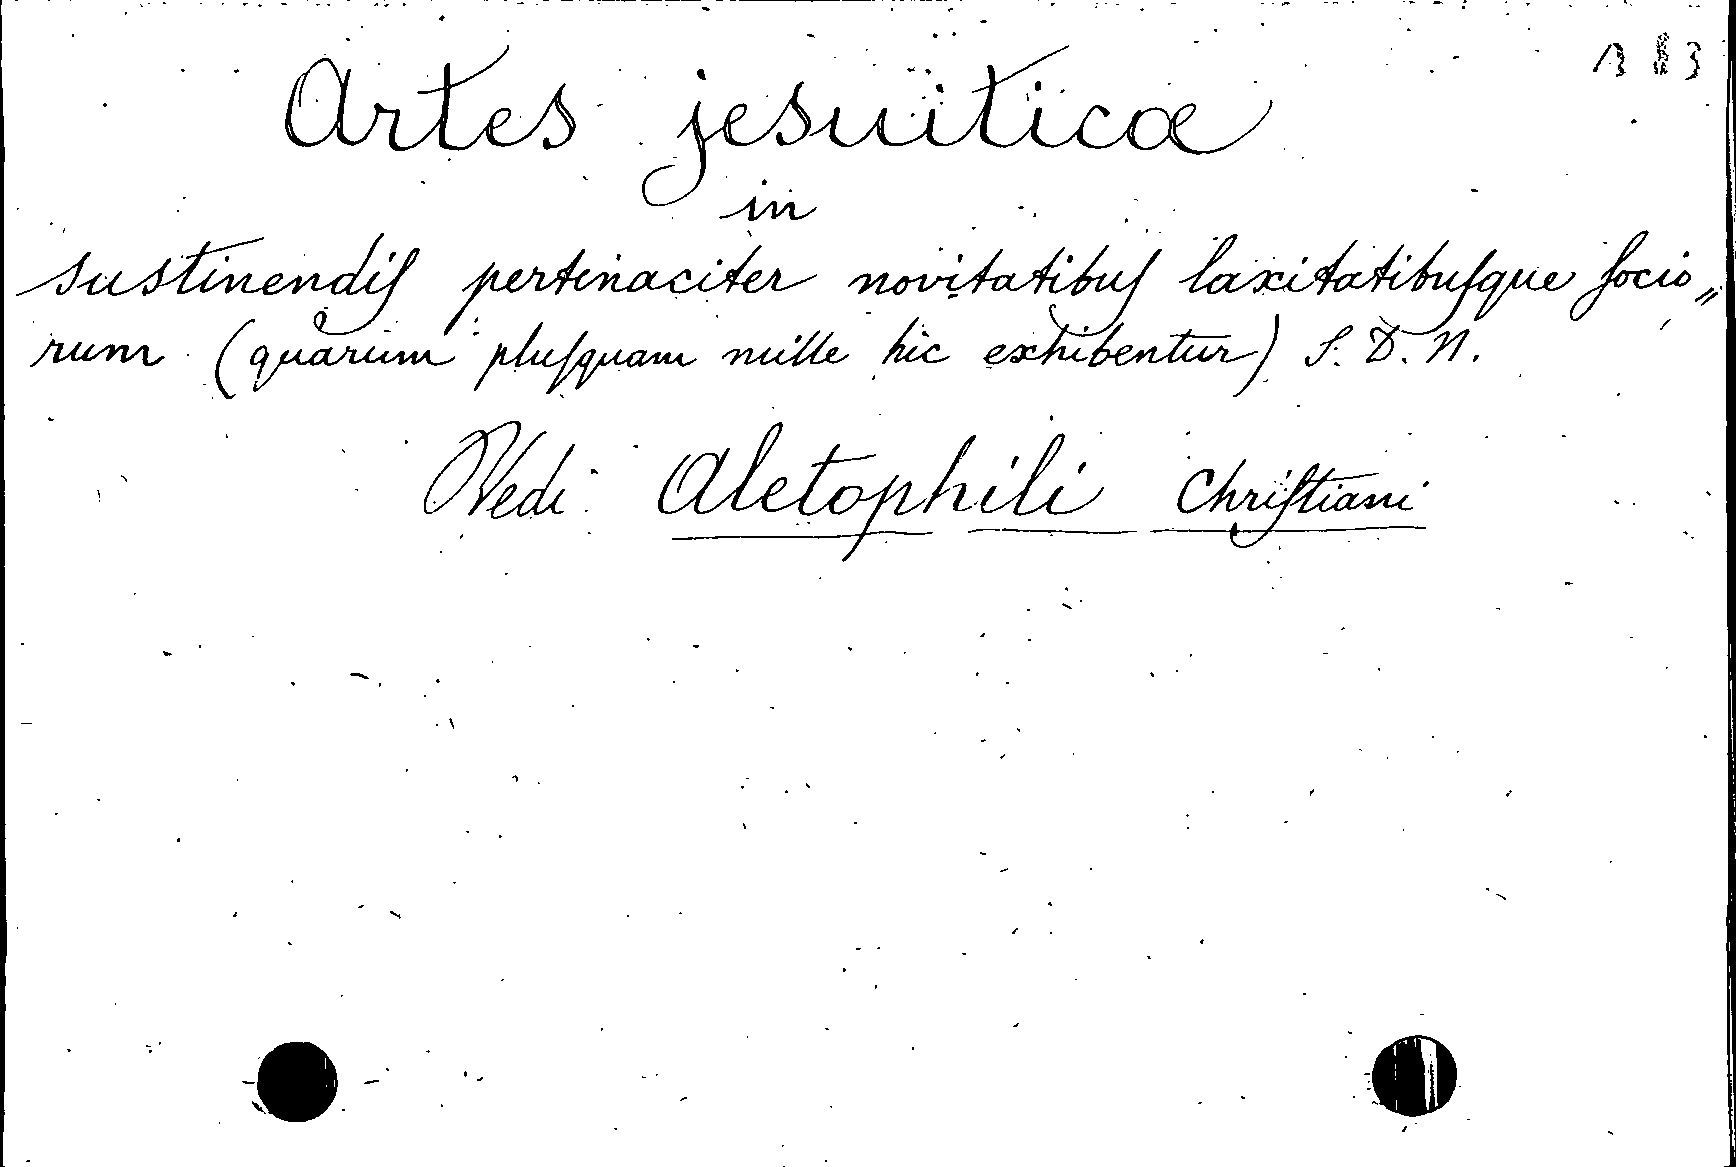 Artes jesuiticæ
in
sustinendiſ pertinaciter novitatibuſ laxitatibuſque ſocio„
rum (quarum pluſquam mille hic exhibentur) S. D. N.
Vedi Aletophili Chriſtiani